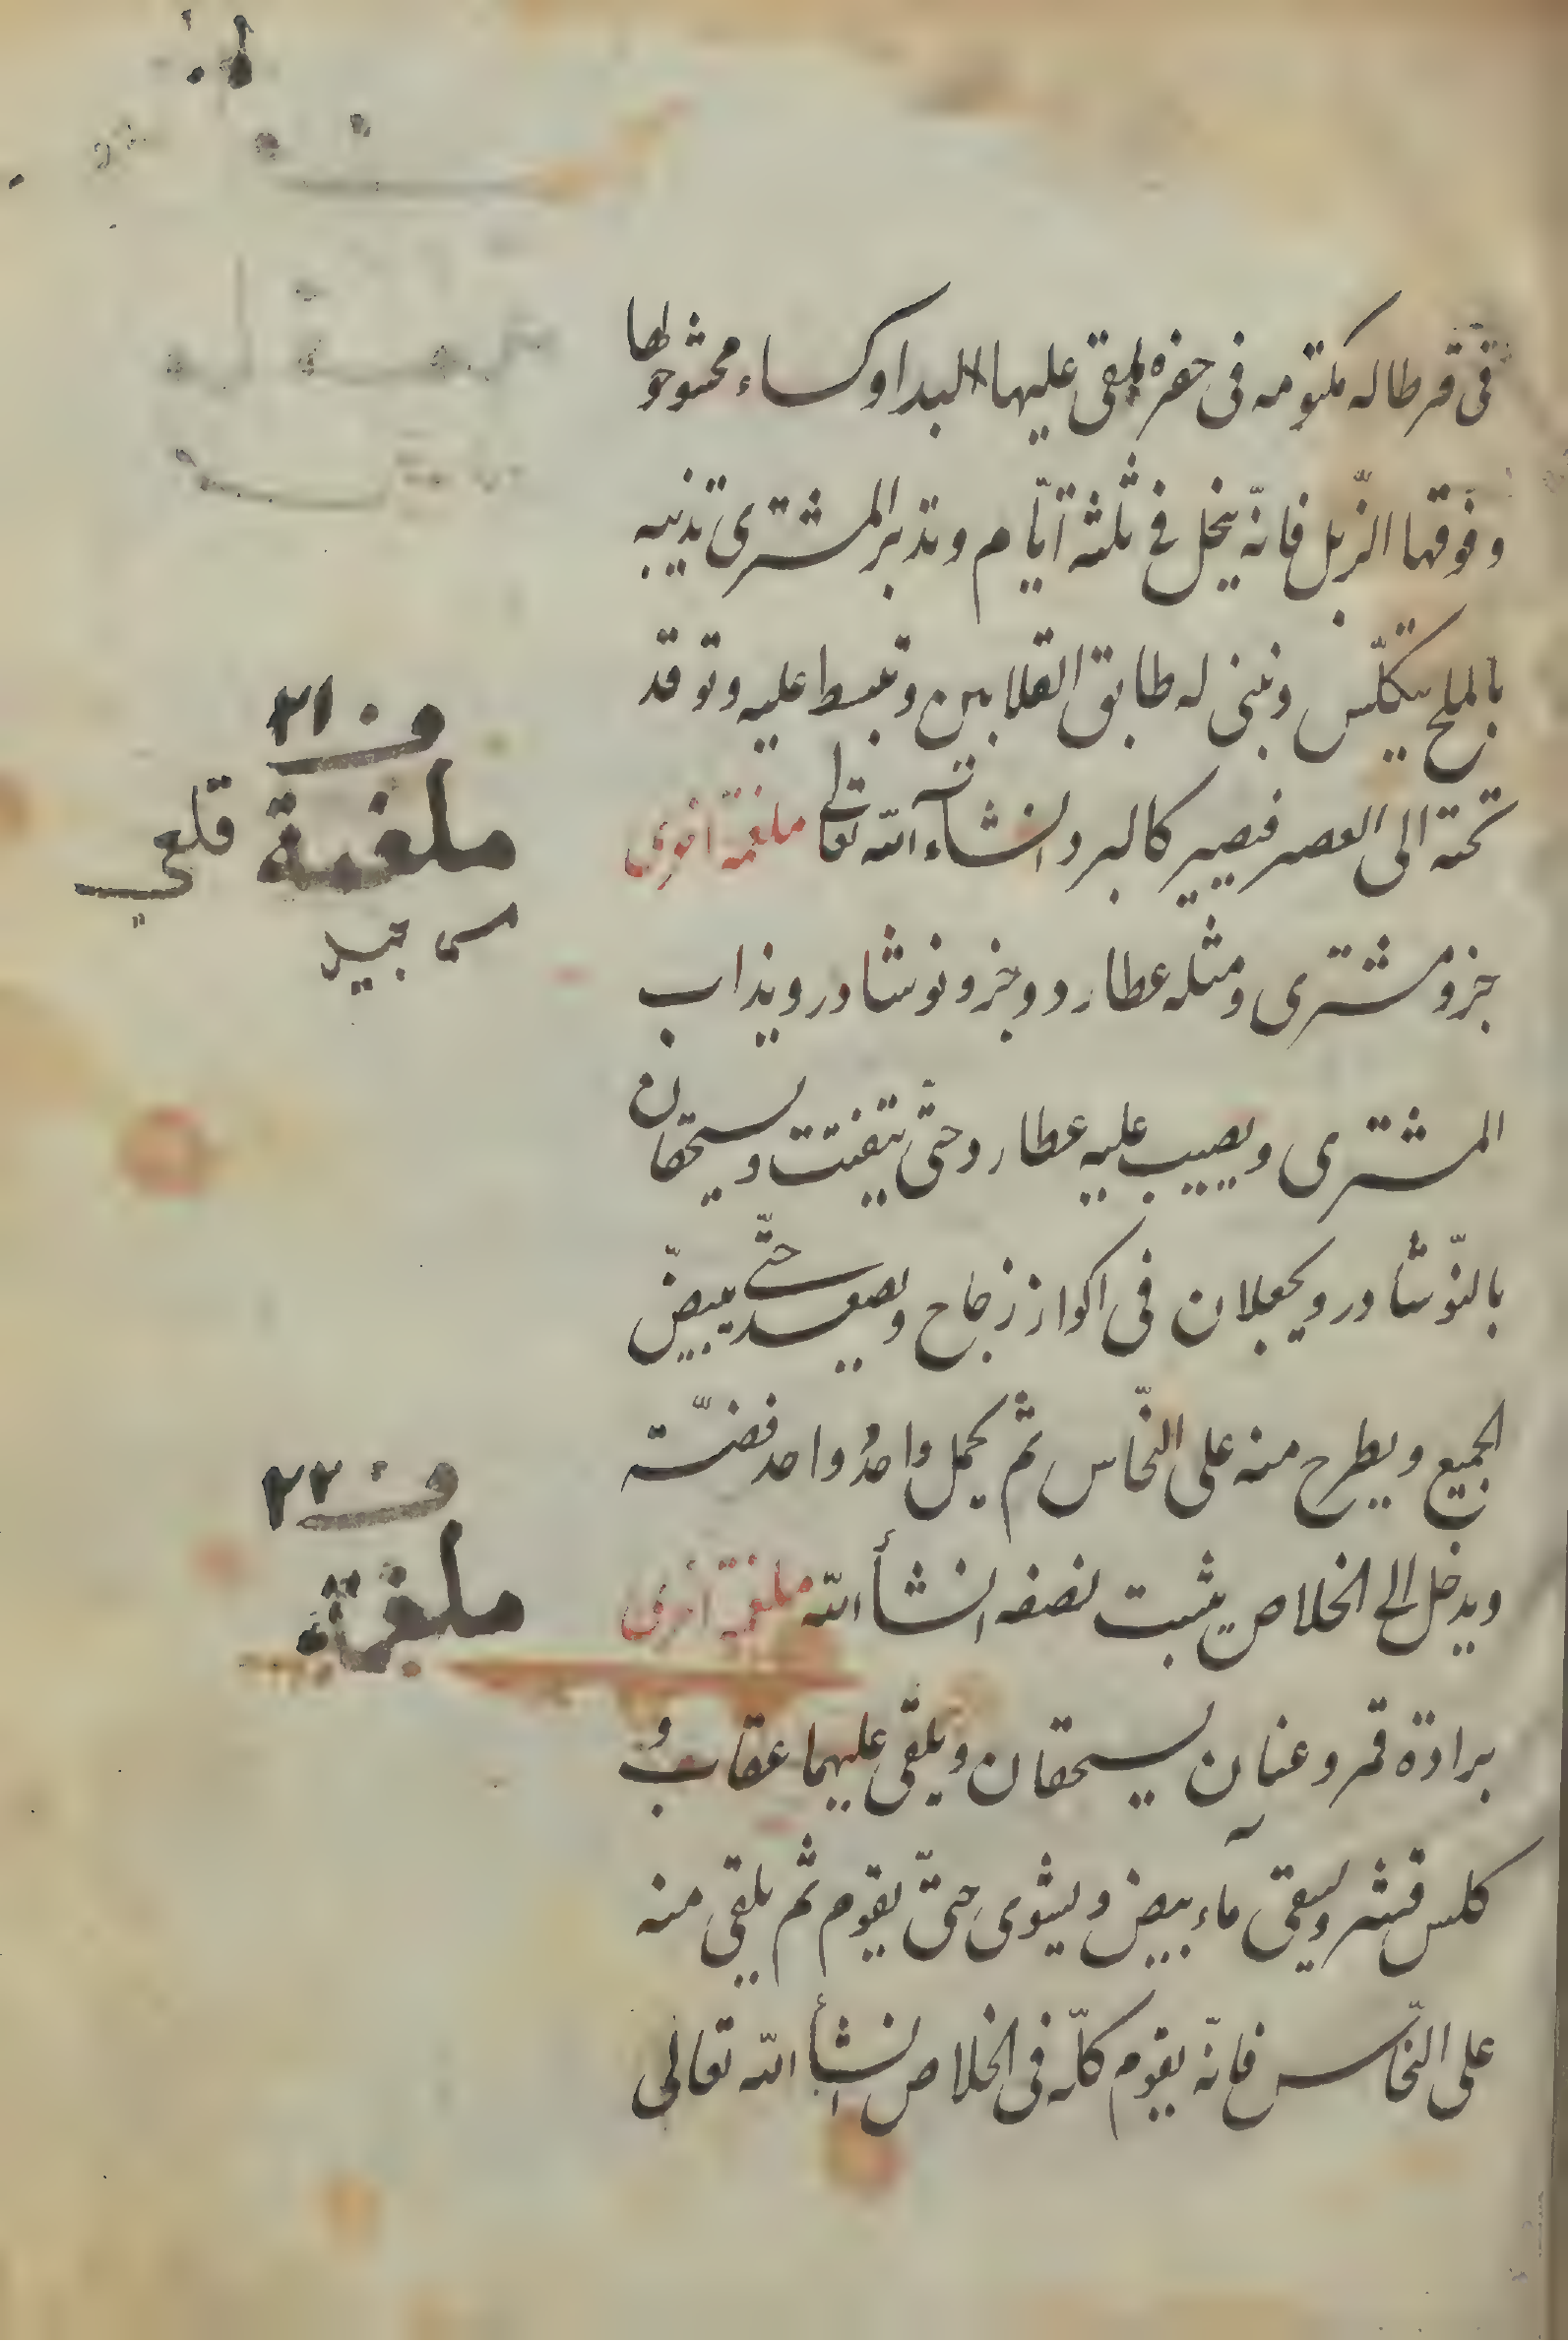 فى قرطاله مكتومه فى حفره يلقى عليها لبدا وكساء محشو حولها
وفوقها الزّبل فانّه ينحل فى ثلثه ايّام وتدبر المشترى تذيبه
بالملح يتكلّس وتبنى له طابق القلابين وتبسط عليه وتوقد
تحته الى العصر فيصير كالبرد انشآء الله تعالى ملغمة اخرى
جزو مشترى ومثله عطارد وجزو نوشادر ويذاب
المشترى ويصيب عليه عطارد حتّى يتفتت ويسحقان
بالنّوشادر ويجعلان فى اكواز زجاج ويصعد حتّى يبيضّ
الجميع ويطرح منه على النّحاس ثم يحمل واحدُ واحد فضّة
ويدخل الى الخلاص يثبت نصفه انشأ الله ملغمة اخرى
برادة قمر وعنان يسحقان ويلقى عليهما عقابُ و
كلس قشر ويسقى مآء بيض ويشوى حتّى يقوم ثم يلقى منه
على النّحاس فانّه يقوم كلّه فى الخلاص انشأ الله تعالى
ف ٢١
ملغمة قلعي
مس جيد
ف ٢٢
ملغمة